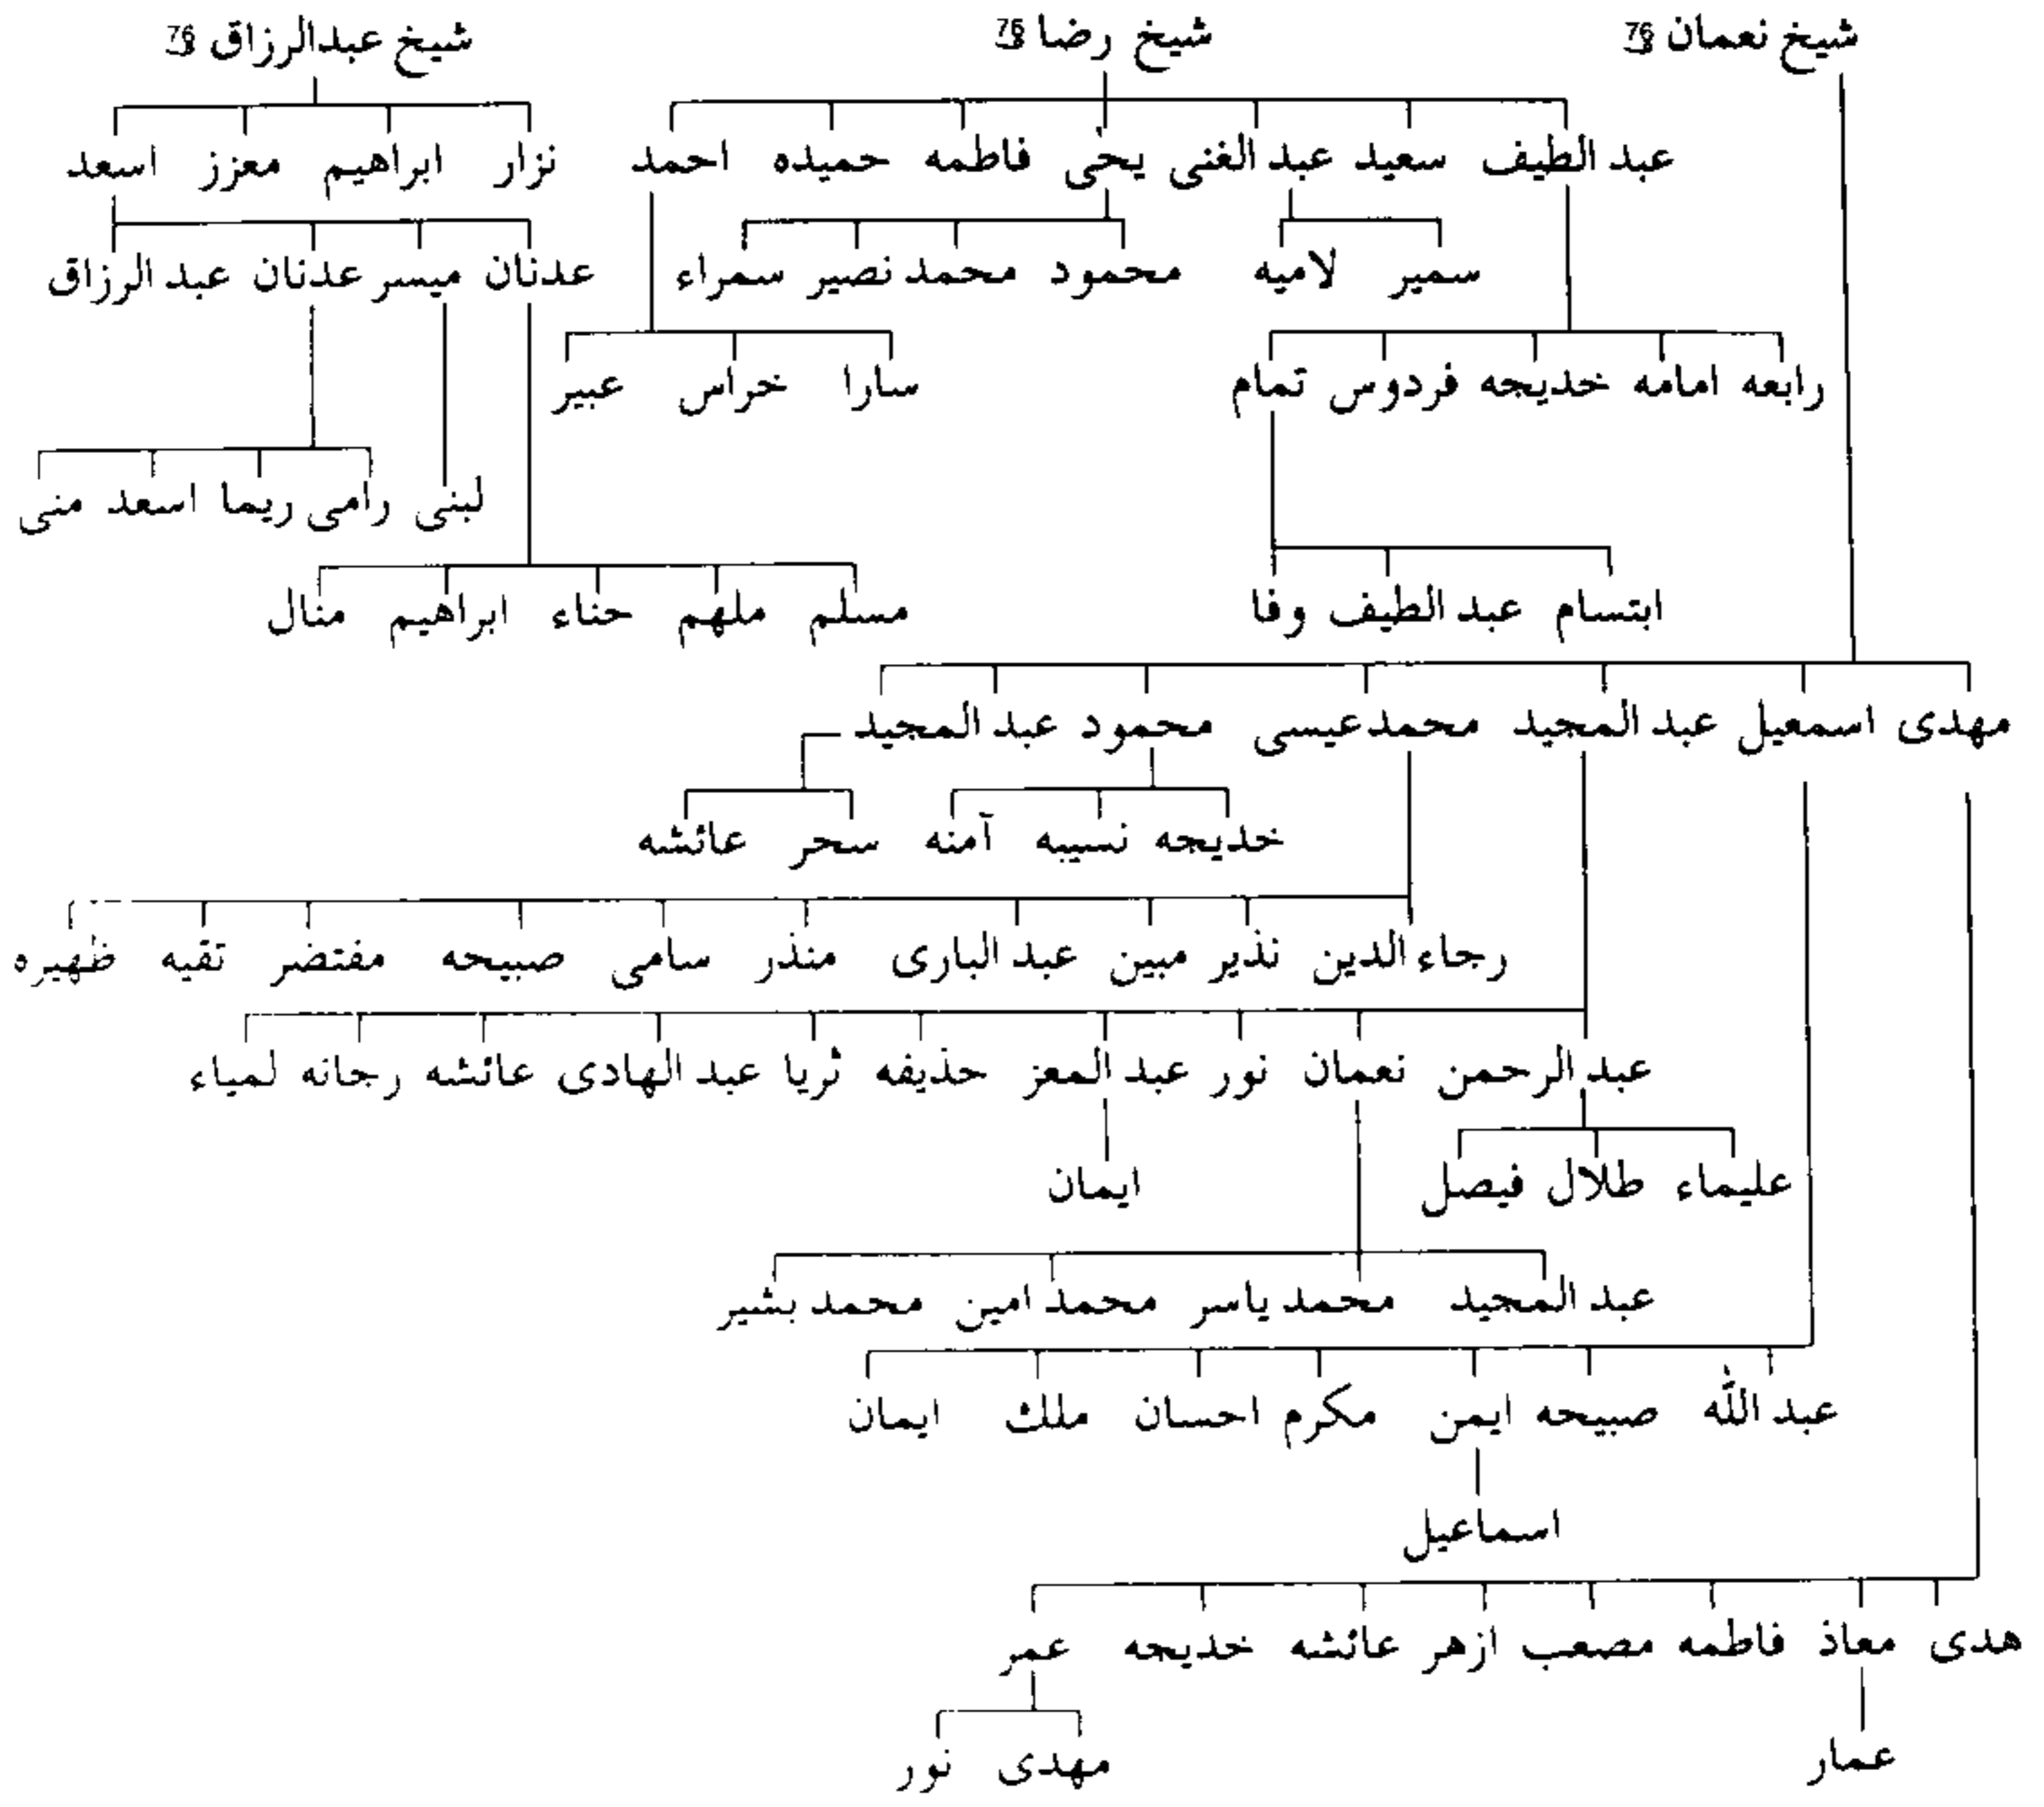 شیخ نعمان 76 شیخ رضا 76 شیخ عبدالرزاق 76
عبد الطیف سعید عبد الغنی یحیٰ فاطمه حمیده احمد نزار ابراهیم معزز اسعد
سمیر لامیه محمود محمد نصیر سمراء عدنان میسر عدنان عبد الرزاق
رابعه امامه خدیجه فردوس تمام سارا خراس عبیر
لبنی رامی ریما اسعد منی
ابتسام عبد الطیف وفا مسلم ملهم حناء ابراهیم منال
مهدی اسمعیل عبد المجید محمد عیسی محمود عبد المجید
خدیجه نسیبه آمنه سحر عائشه
رجاء الدین نذیر مبین عبد الباری منذر سامی صبیحه مفتضر تقیه ظهیره
عبد الرحمن نعمان نور عبد المعز حذیفه ثریا عبد الهادی عائشه رجانه لمیاء
علیماء طلال فیصل ایمان
عبد المجید محمد یاسر محمد امین محمد بشیر
عبد الله صبیحه ایمن مکرم احسان ملك ایمان
اسماعیل
هدی معاذ فاطمه مصعب ازهر عائشه خدیجه عمر
عمار مهدی نور